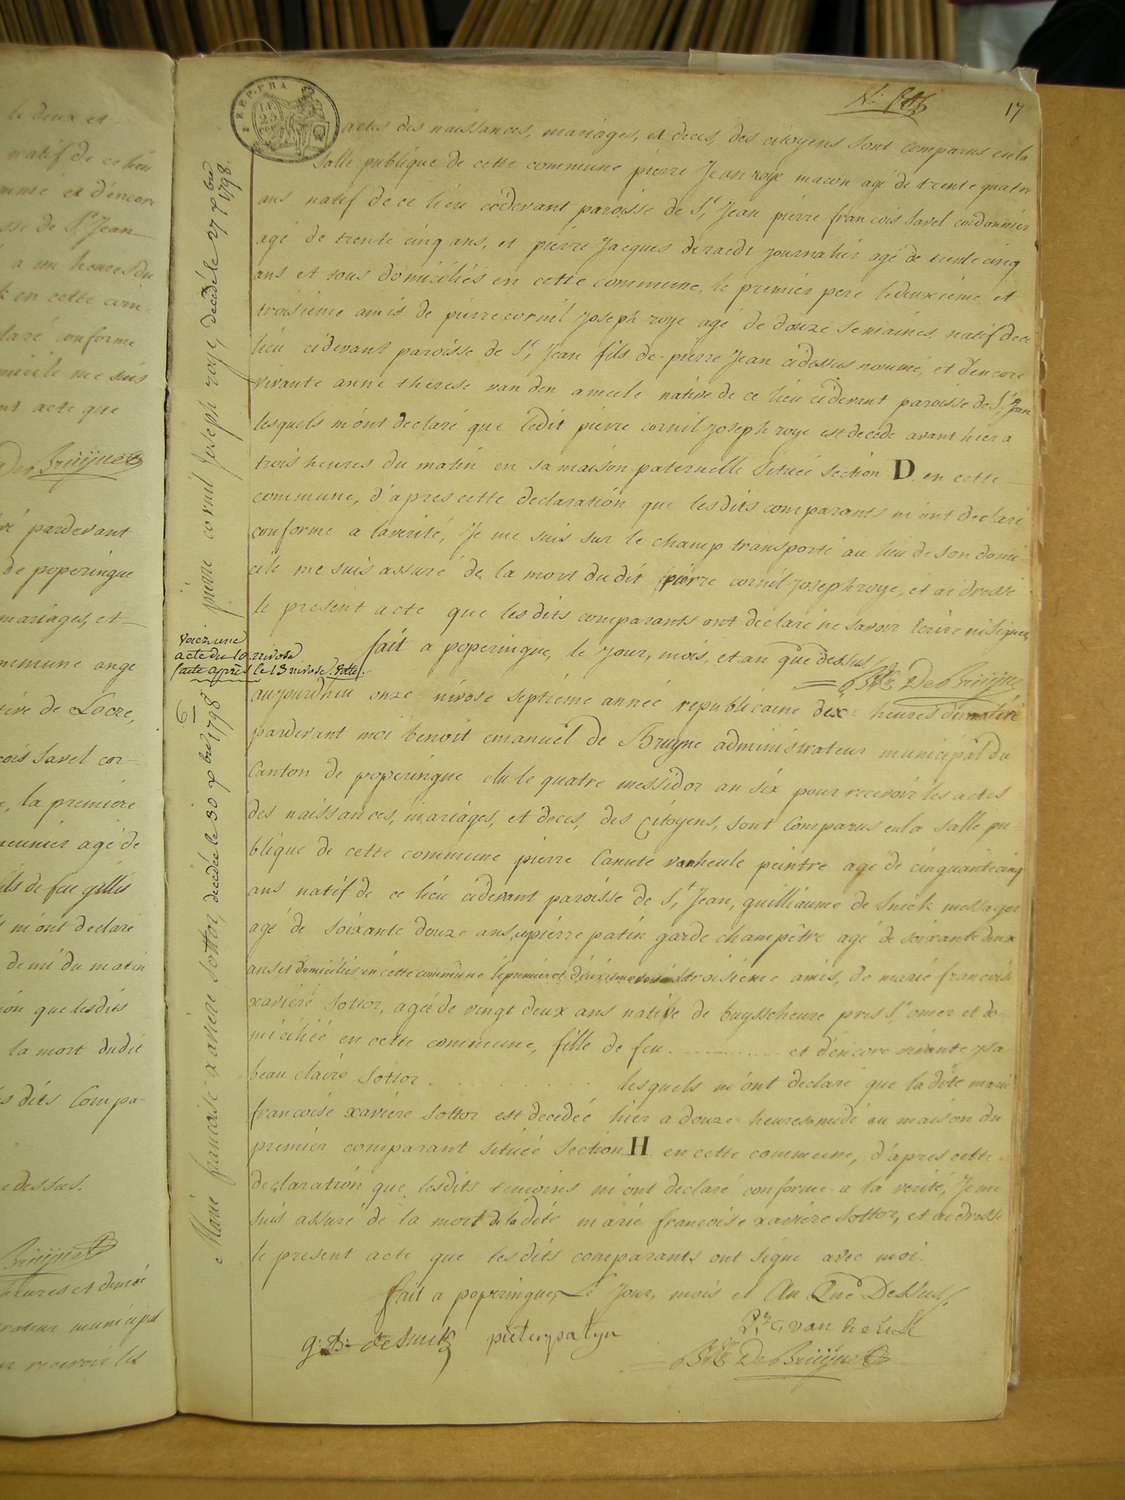 le deux et
natif de ce lieu
nommé et d'encore
sse de St Jean
a un heures du
k en cette com
claré conforme
micile me suis
nt acte que
De Bruijne
pardevant
de poperingue
mariages, et
mmune ange
tive de Locre,
cois Savel cor
, la premiere
meunier agé de
ils de feu gillis
m'ont declaré
demi du matin
ion que lesdits
la mort dudit
s dits Compa-
e dessus.
Bruijne
heures et demie
rateur municipal
recevoir les
17
REP. FRA
actes des naissances, mariages, et deces, des citoyens sont comparus en la
Salle publique de cette commune pierre Jean roye macon agé de trente quatre
ans natif de ce lieu cidevant paroisse de St Jean pierre francois Savel cordonnier
agé de trente cinq ans, et pierre Jacques deraedt journalier agé de trente cinq
ans et tous domiciliés en cette commune, le premier pere le deuxieme et
troisieme amis de pierre cornil Joseph roye agé de douze semaines natif de ce
lieu cidevant paroisse de St Jean fils de pierre Jean cidessus nommé, et d'encore
vivante anne therese van den ameele native de ce lieu cidevant paroisse de St Jean
lesquels m'ont declaré que ledit pierre cornil joseph roye est decedé avant hier a
trois heures du matin en sa maison paternelle Située section D en cette
commune, d'apres cette declaration que lesdits comparants m'ont declaré
conforme a la verité, Je me suis sur le champ transporté au lieu de son domi
cile me suis assuré de la mort dudit pierre cornil joseph roye, et ai dressé
le present acte que lesdits comparants ont declaré ne savoir Ecrire ni signer,
fait a poperingue, le jour, mois, et an que dessus
De Bruijne
pierre cornil Joseph roye, decedé le 27 xbre 1798.
Voiez une
acte du 10 nivose
faite apres le 13 nivose
61
Marie francoise xaviere Sottor, decedée le 30 xbre 1798
aujourd'hui onze nivose septieme année republicaine dix heures du matin
pardevant moi benoit emanuel de Bruyne administrateur municipal du
Canton de poperingue elu le quatre messidor an six pour recevoir les actes
des naissances, mariages, et deces, des Citoyens, sont Comparus en la Salle pu-
blique de cette commune pierre Canute vanheule peintre agé de cinquante cinq
ans natif de ce lieu cidevant paroisse de St Jean, guilliaume de Snick messager
agé de soixante douze ans, pierre patin garde champêtre agé de soixante deux
ans et domiciliés en cette commune le premier et deuxieme troisieme amis, de marie francoise
xaviere Sottor, agée de vingt deux ans native de buysscheure pres St omer et do-
miciliée en cette commune, fille de feu ............ et d'encore vivante ysa
beau claire Sottor ............ lesquels m'ont declaré que la dite marie
francoise xaviere Sottor est decedée hier a douze heures midi en maison du
premier comparant située section H en cette commune, d'apres cette
declaration que lesdits temoins m'ont declaré conforme a la verité, Je me
suis assuré de la mort de la dite marie francoise xaviere Sottor, et ai dressé
le present acte que lesdits comparants ont signé avec moi.
fait a poperingue, Le Jour, mois et An Que Dessus,
van heule
pieter patyn
De Bruijne